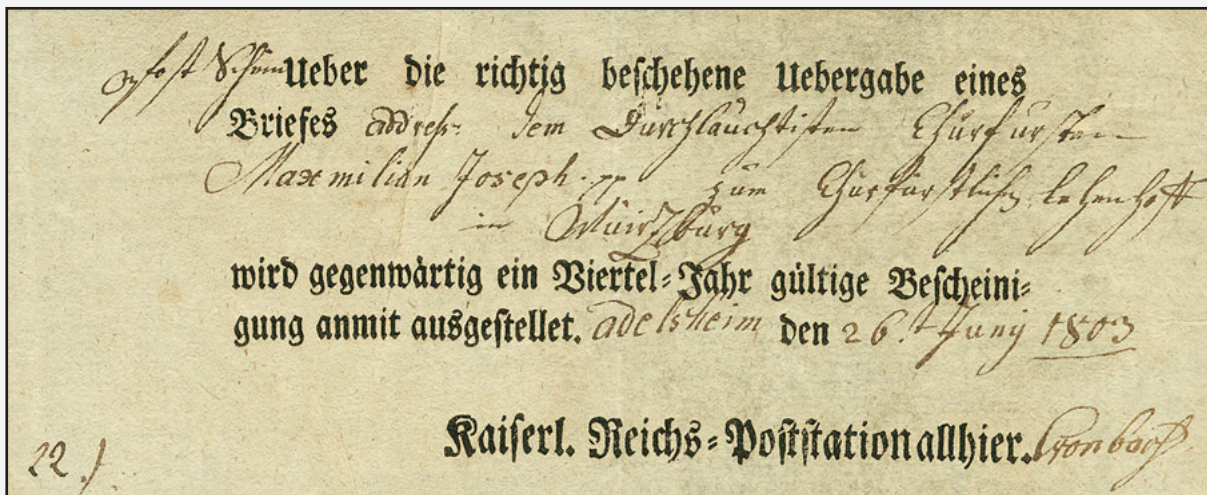 Post Schein Ueber die richtig beſchehene Uebergabe eines
Briefes addreß: dem Durchlauchtisten Churfürsten
Maxmilian Joseph. pp zum Churfürstlichen Lehenhoff
in Würtzburg
wird gegenwärtig ein Viertel-Jahr gültige Beſcheini-
gung anmit ausgeſtellet. adelsheim den 26.t Juny 1803
Kaiſerl. Reichs-Poſtſtation allhier.
22.)